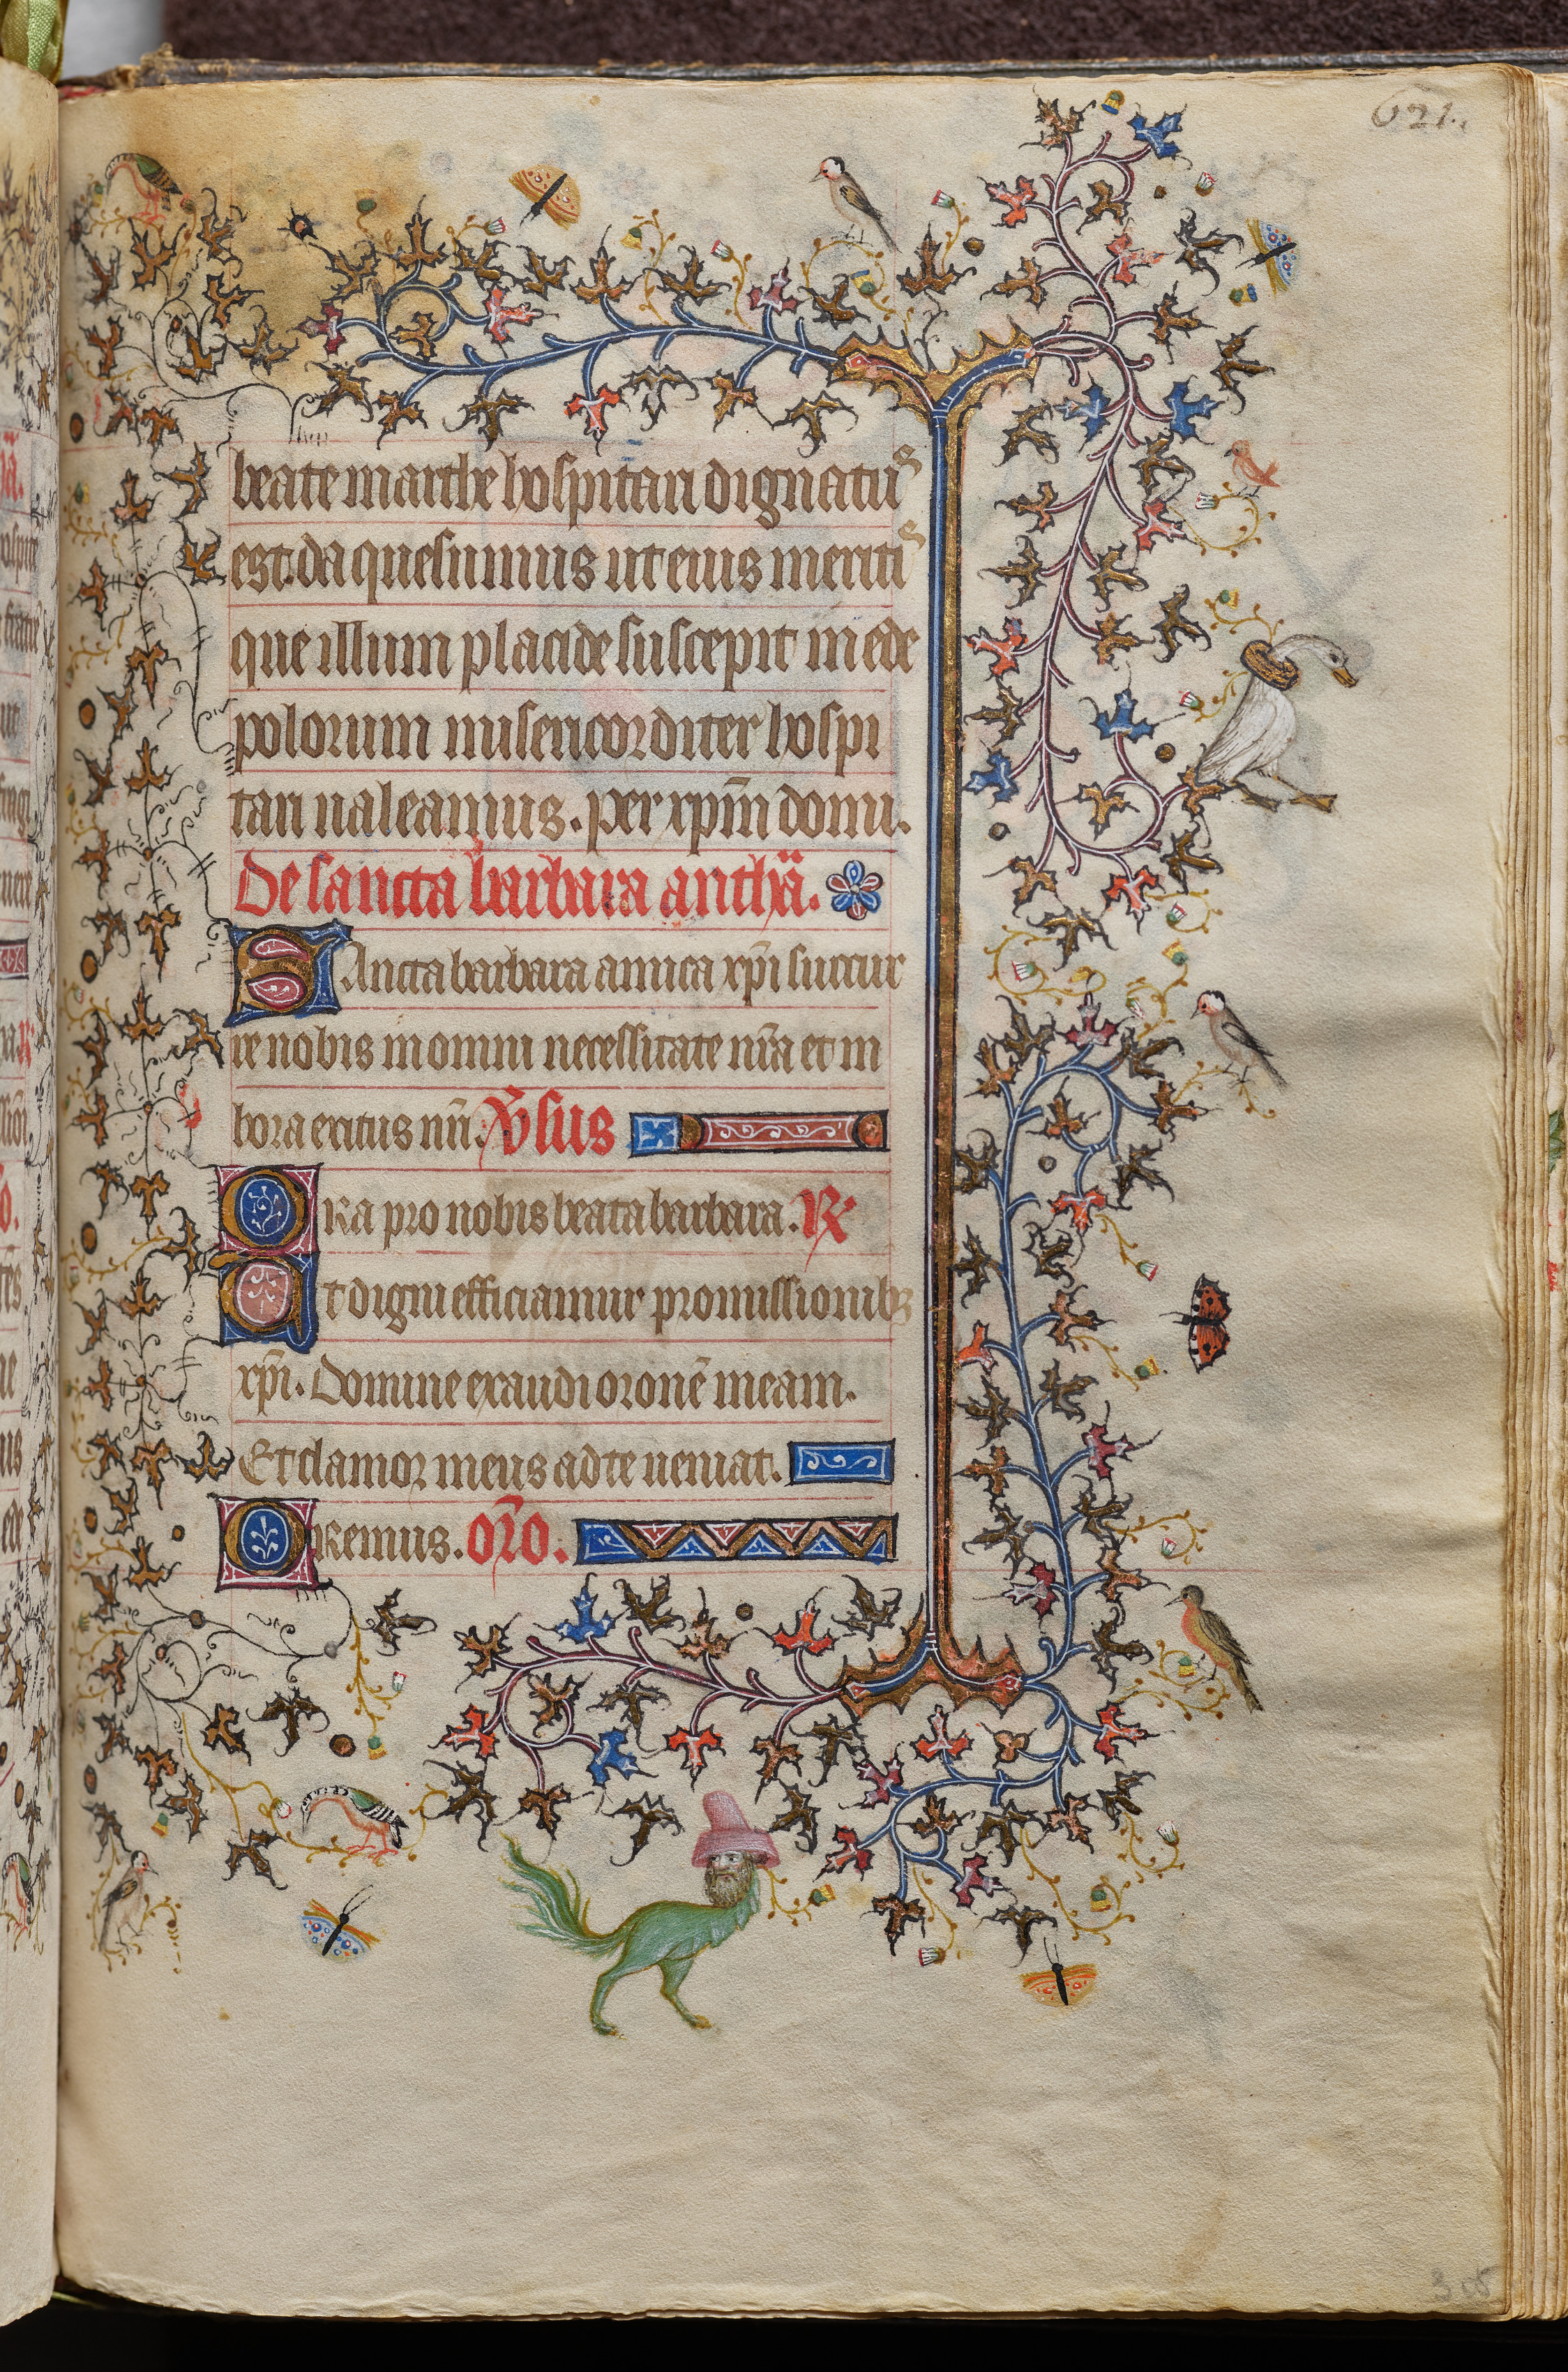 621.
beate marthe hospitari dignatus
est. da quesumus ut eius meritis
que illum placide suscepit in ede
polorum misericorditer hospi
tari ualeamus. per xp̄m domi.
De sancta barbara antħa.
SAncta barbara amica xp̄i succur
re nobis in omni necessitate nr̄a et in
hora exitus nr̄i. V̄sus
ORa pro nobis beata barbara. ℟
Ut digni efficiamur promissionibꝫ
xp̄i. Domine exaudi oronē meam.
Et clamor meus ad te ueniat.
ORemus. Or̄o.